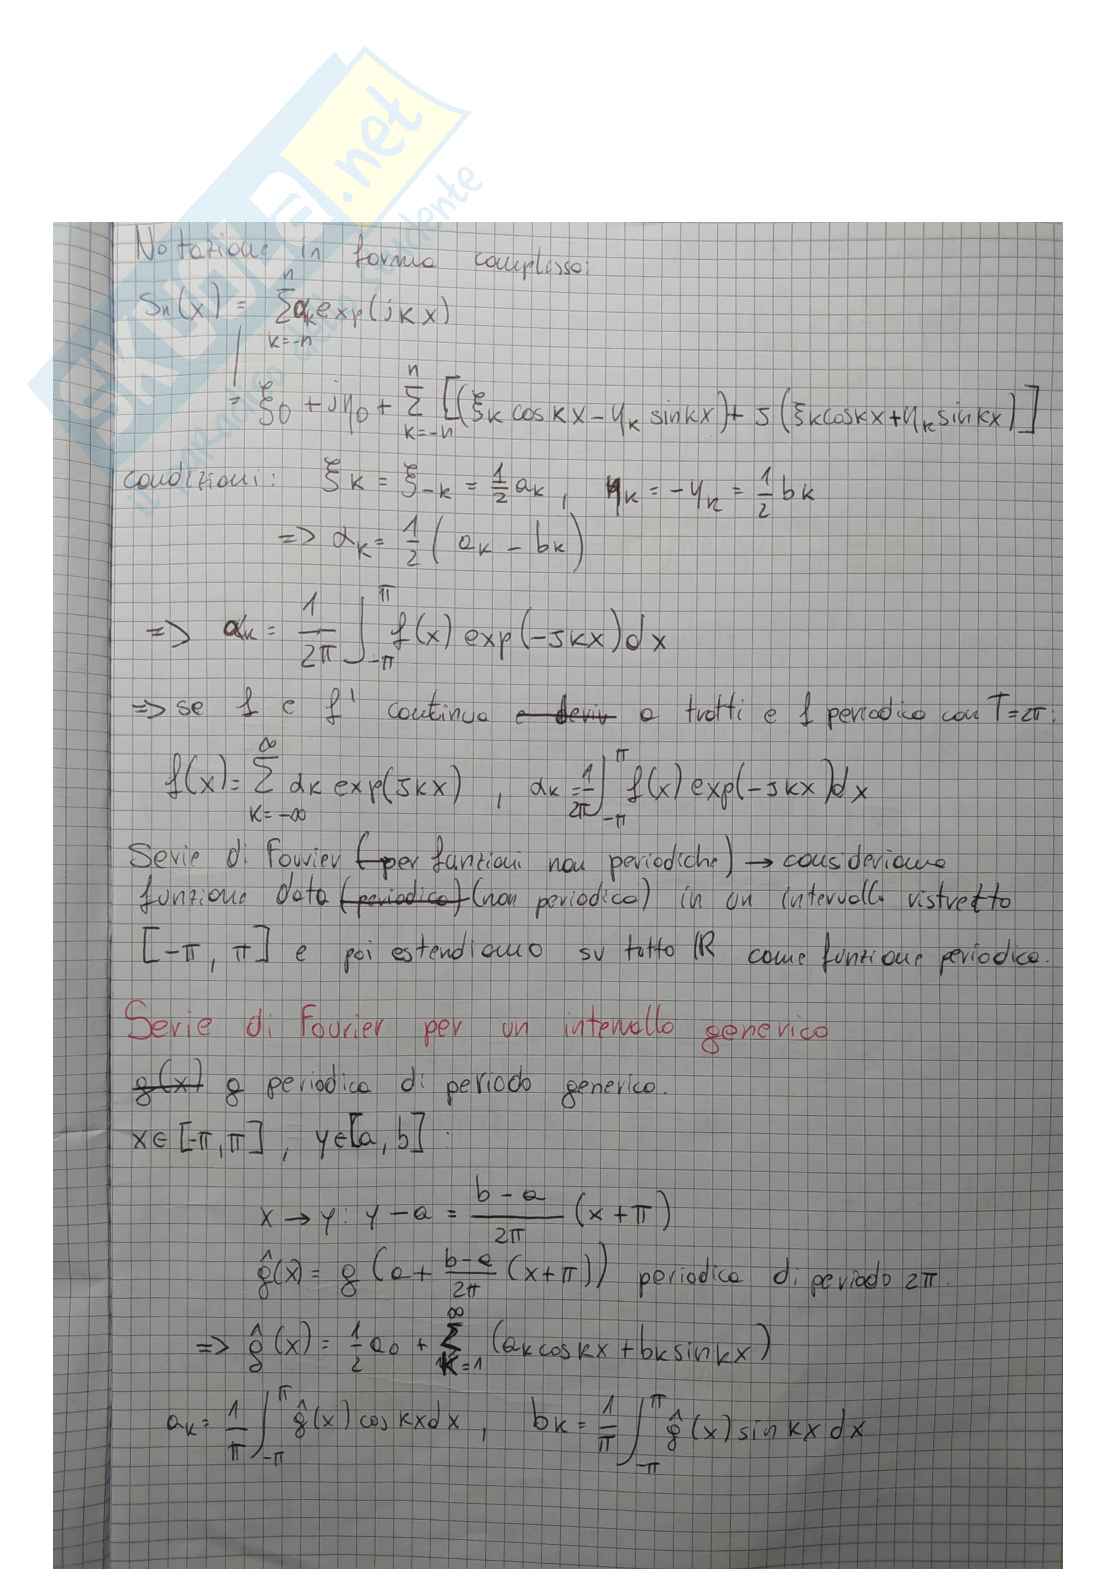 SKUOLA.net
Notazione in forma complessa:
Sn(x) = Σ_{k=-n}^{n} αk exp(jkx)
= ξ0 + jη0 + Σ_{k=-n}^{n} [(ξk cos kx - ηk sin kx) + j (ξk cos kx + ηk sin kx)]
condizioni: ξk = ξ-k = 1/2 ak, ηk = -ηk = 1/2 bk
=> αk = 1/2 (ak - bk)
=> αk = 1/2π ∫_{-π}^{π} f(x) exp(-jkx) dx
=> se f e f' continua e deriv a tratti e f periodica con T=2π:
f(x) = Σ_{k=-∞}^{∞} αk exp(jkx), αk = 1/2π ∫_{-π}^{π} f(x) exp(-jkx) dx
Serie di Fourier (per funzioni non periodiche) → consideriamo
funzione data (periodica) (non periodica) in un intervallo ristretto
[-π, π] e poi estendiamo su tutto ℝ come funzione periodica.
Serie di Fourier per un intervallo generico
g(x) g periodica di periodo generico.
x∈[-π,π], y∈[a, b]:
x → y: y - a = b-a/2π (x+π)
ĝ(x) = g (a + b-a/2π (x+π)) periodica di periodo 2π.
=> ĝ(x) = 1/2 a0 + Σ_{k=1}^{∞} (ak cos kx + bk sin kx)
ak = 1/π ∫_{-π}^{π} ĝ(x) cos kx dx, bk = 1/π ∫_{-π}^{π} ĝ(x) sin kx dx